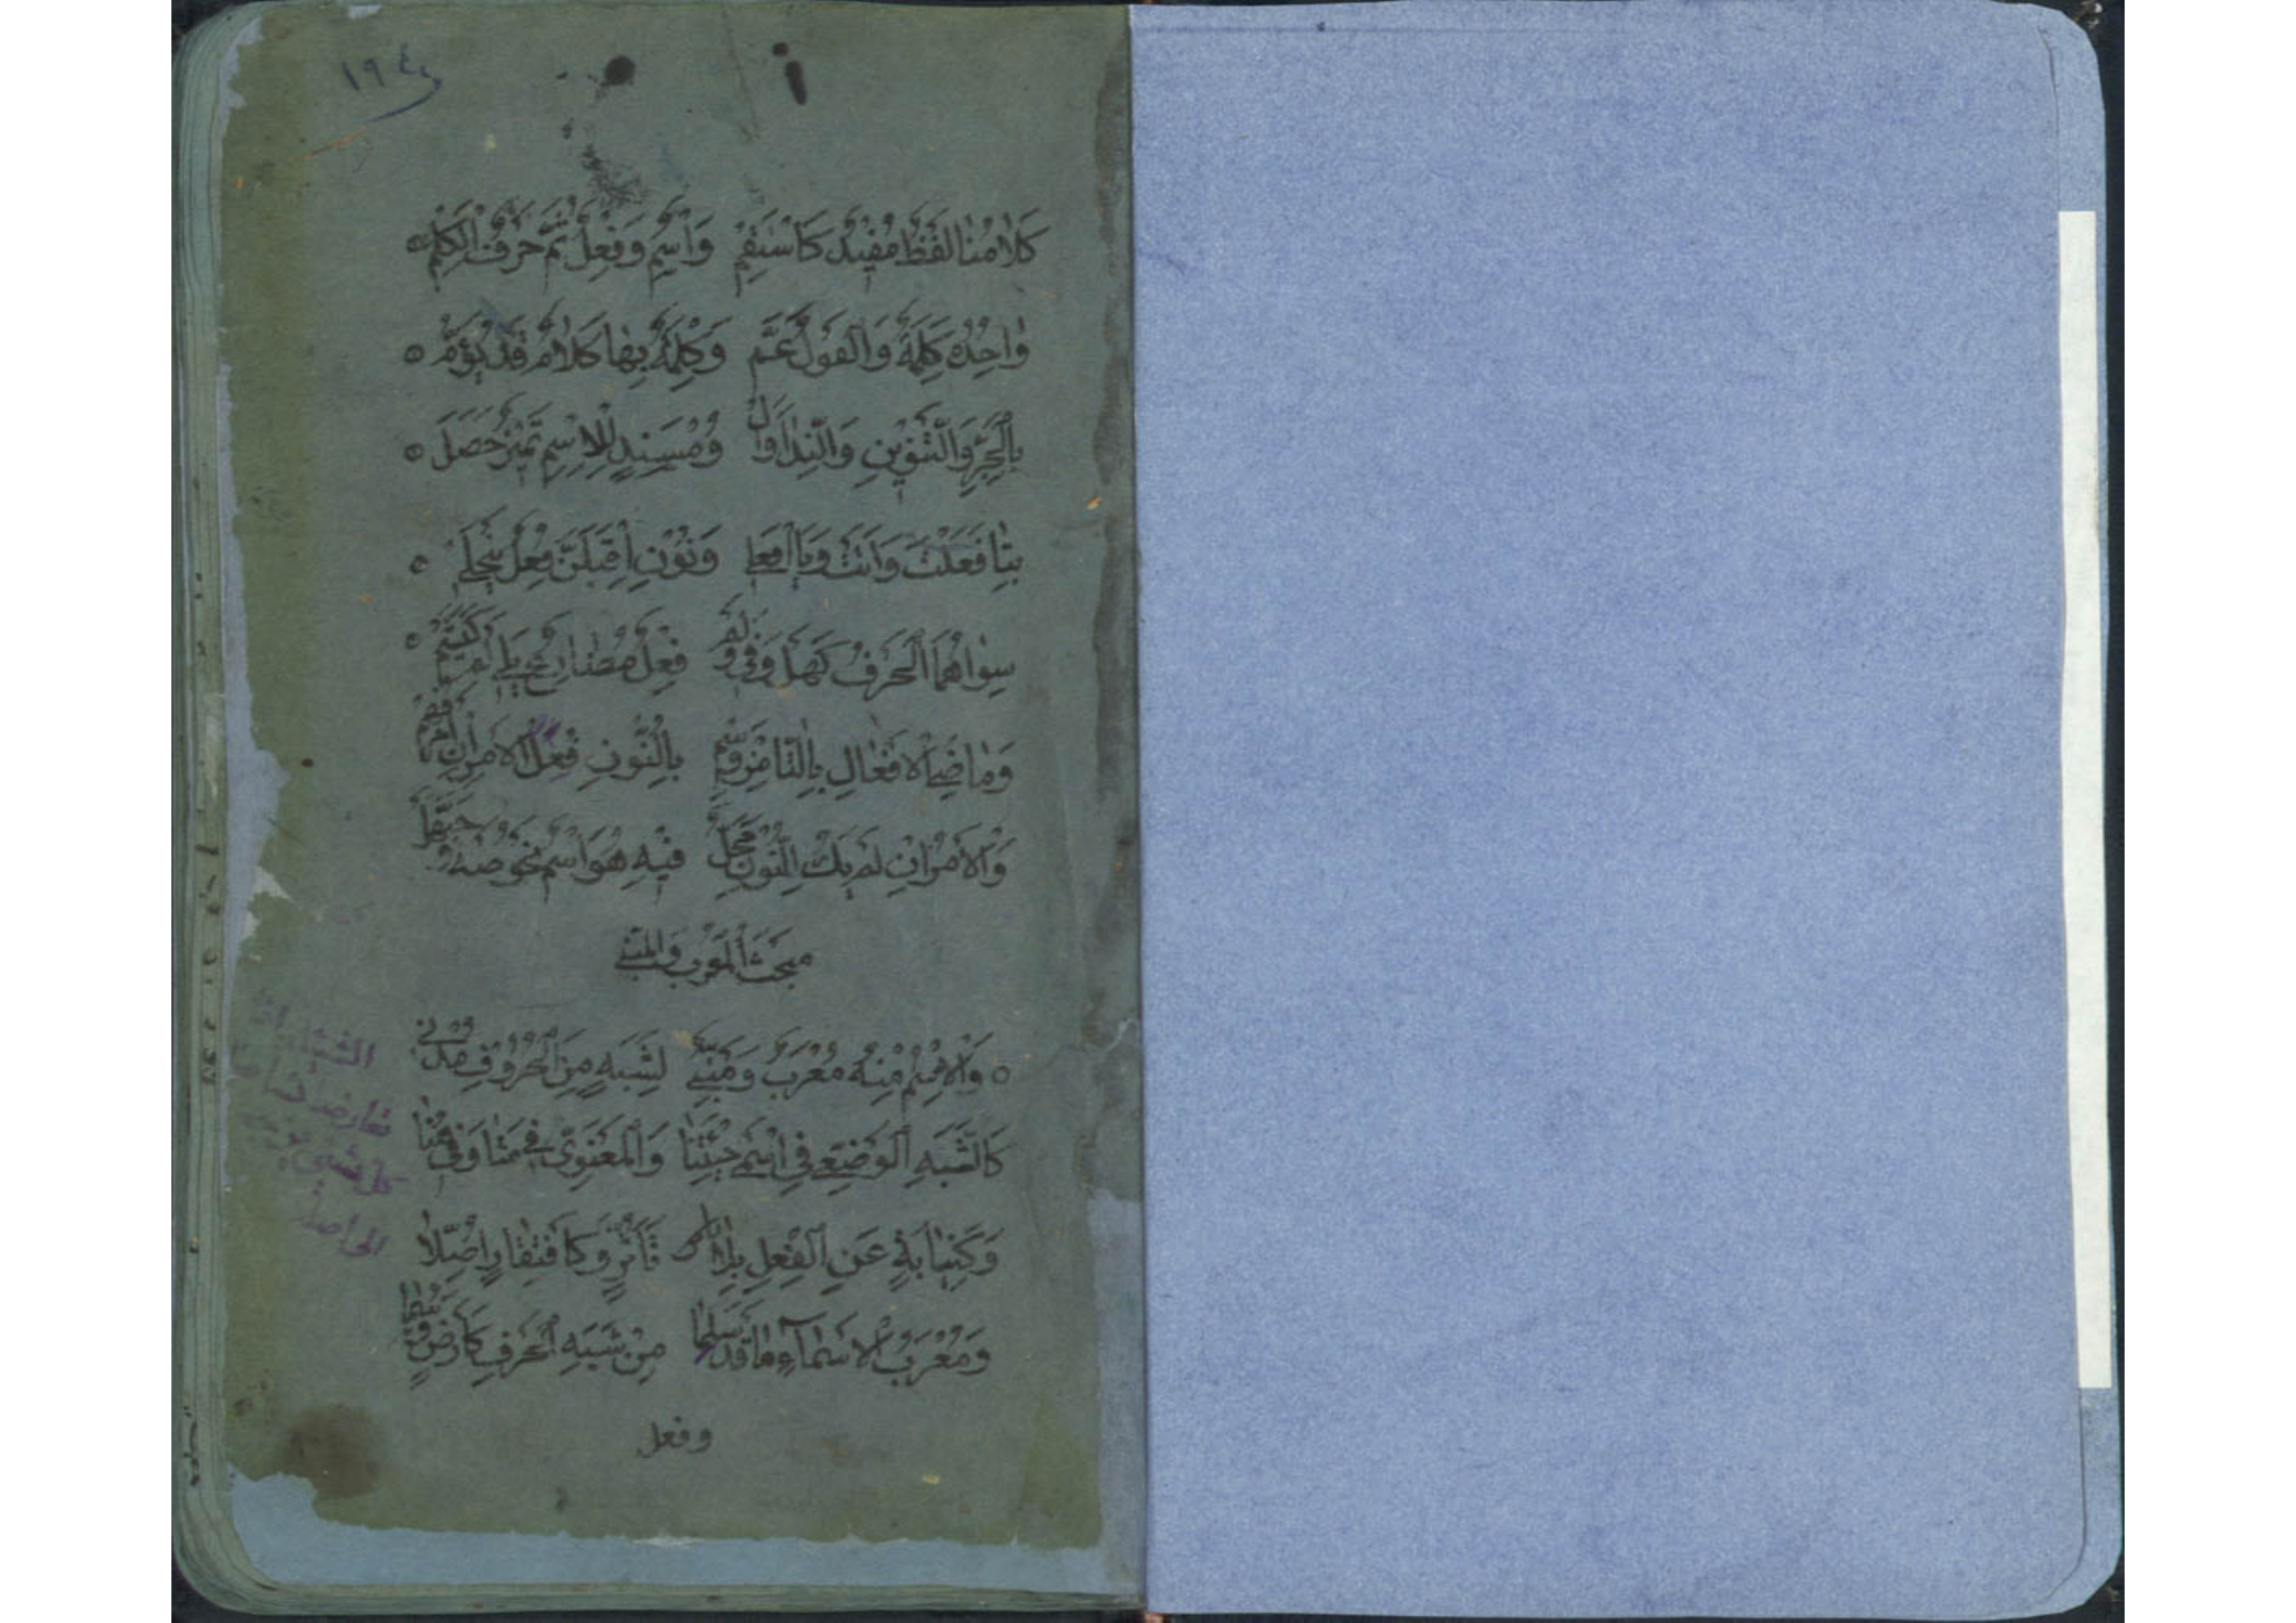 ١٩٤
كَلَامُنَا لَفْظٌ مُفِيدٌ كَاسْتَقِمْ وَاسْمٌ وَفِعْلٌ ثُمَّ حَرْفٌ الْكَلِمْ
وَاحِدُهُ كَلِمَةٌ وَالْقَوْلُ عَمَّ وَكِلْمَةٌ بِهَا كَلَامٌ قَدْ يُؤَمّْ
بِالْجَرِّ وَالتَّنْوِينِ وَالنِّدَا وَالْ وَمُسْنَدٍ لِلْاِسْمِ تَمْيِيزٌ حَصَلَ
بِتَا فَعَلْتَ وَاَتَتْ وَيَا افْعَلِي وَنُونِ اَقْبِلَنَّ فِعْلٌ يَنْجَلِي
سِوَاهُمَا الْحَرْفُ كَهَلْ وَفِي وَلَمْ فِعْلٌ مُضَارِعٌ يَلِي لَمْ كَيَشَمّْ
وَمَاضِيَ الْاَفْعَالِ بِالتَّا مِزْ وَسِمْ بِالنُّونِ فِعْلَ الْاَمْرِ اِنْ اَمْرٌ فُهِمْ
وَالْاَمْرُ اِنْ لَمْ يَكُ لِلنُّونِ مَحَلّْ فِيهِ هُوَ اسْمٌ نَحْوُ صَهْ وَحَيَّهَلْ
مبحث المعرب والمبني
وَالْاِسْمُ مِنْهُ مُعْرَبٌ وَمَبْنِي لِشَبَهٍ مِنَ الْحُرُوفِ مُدْنِي
كَالشَّبَهِ الْوَضْعِيِّ فِي اسْمَيْ جِئْتَنَا وَالْمَعْنَوِيِّ فِي مَتَا وَفِي هُنَا
وَكَنِيَابَةٍ عَنِ الْفِعْلِ بِلَا تَاَثُّرٍ وَكَافْتِقَارٍ اُصِّلَا
وَمُعْرَبُ الْاَسْمَآءِ مَا قَدْ سَلِمَا مِنْ شَبَهِ الْحَرْفِ كَاَرْضٍ وَسُمَا
وفعل